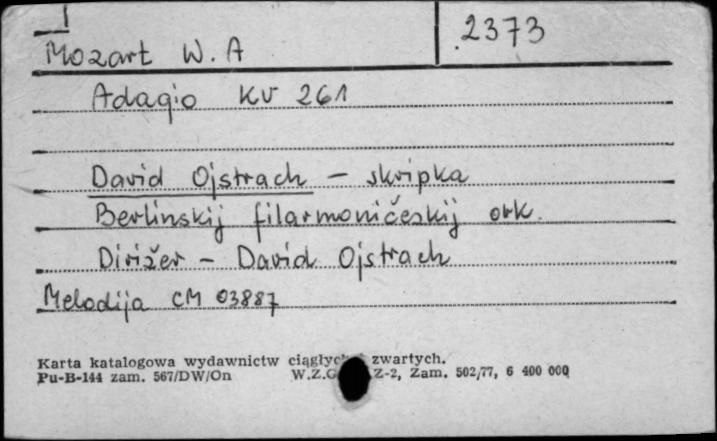 Mozart W. A
2373
Adagio KV 261
David Ojstrach – skripka
Berlinskij filarmoničeskij ork.
Dirižer – David Ojstrach
Melodija CM 03887
Karta katalogowa wydawnictw zwartych.
Pu-B-144 zam. 567/DW/On Z-2, Zam. 502/77, 6 400 000